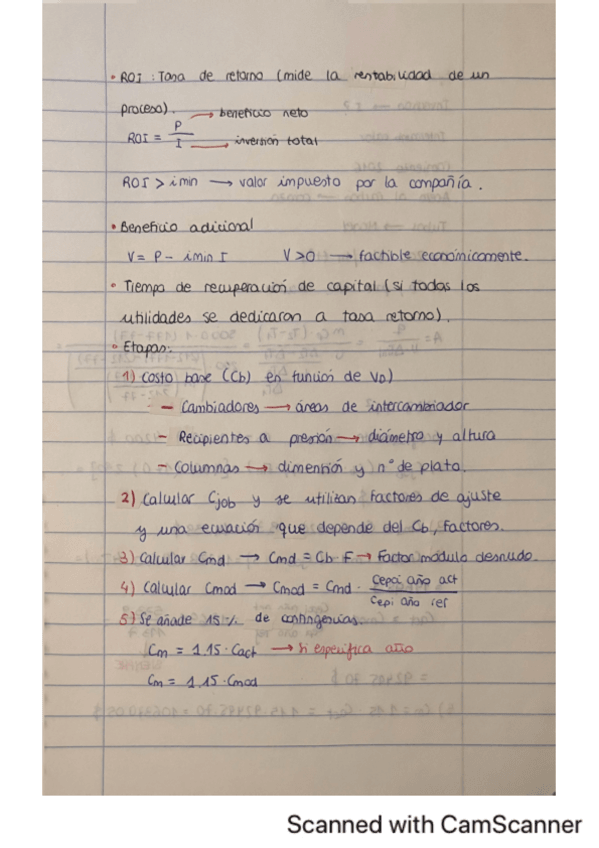 • ROI : Tasa de retorno (mide la rentabilidad de un
proceso).
→ beneficio neto
ROI = P / I
→ inversión total
ROI > i min → valor impuesto por la compañía.
• Beneficio adicional
V = P - imin I V>0 → factible económicamente.
• Tiempo de recuperación de capital (si todas los
utilidades se dedicaran a tasa retorno).
• Etapas:
1) Costo base (Cb) en función de VD)
- Cambiadores → áreas de intercambiador
- Recipientes a presión → diámetro y altura
- Columnas → dimensión y nº de plato.
2) Calcular Cjob y se utilizan factores de ajuste
y una ecuación que depende del Cb, factores.
3) Calcular Cmd → Cmd = Cb · F → Factor módulo desnudo.
4) Calcular Cmod → Cmod = Cmd · Cepci año act / Cepi año ref
5) Se añade 15 % de contingencias.
Cm = 1.15 · Cact → si especifica año
Cm = 1.15 · Cmod
Scanned with CamScanner